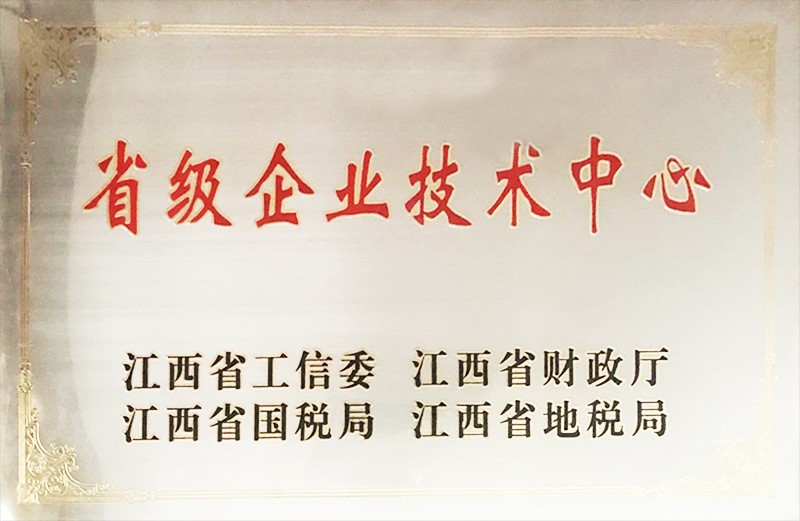 省级企业技术中心
江西省工信委 江西省财政厅
江西省国税局 江西省地税局